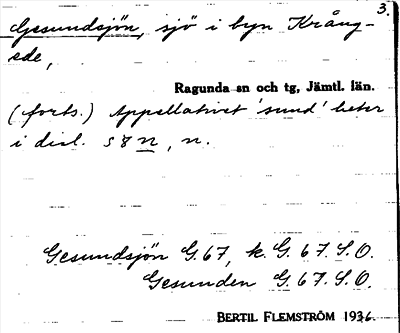 3.
Gesundsjön, sjö i byn Krång-
ede,
Ragunda sn och tg, Jämtl. län.
(forts.) Appellativet 'sund' heter
i dial. , n.
Gesundsjön G. 67, k. G. 67. S. O.
Gesunden G. 67. S. O.
BERTIL FLEMSTRÖM 1936.